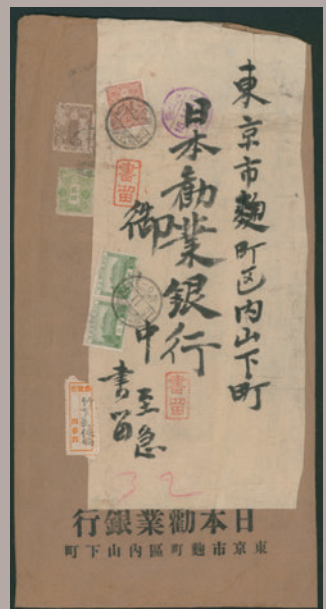 東京市麹町区内山下町
日本勧業銀行
御中
至急
書留
書留
書留
32
日本勸業銀行
東京市麴町區內山下町